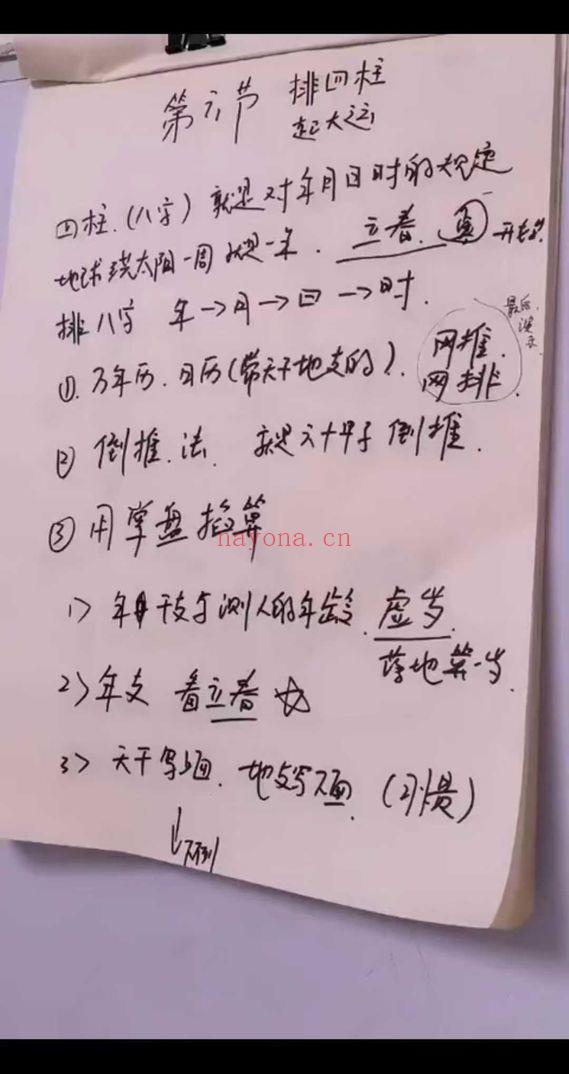 第六节 排四柱
起大运
四柱.(八字) 就是对年月日时的规定
地球绕太阳一周就是一年. 立春. 寅 开始.
排八字 年→月→日→时.
最后
① 万年历.日历(带天干地支的).
网推.
网排.
② 倒推.法. 就是六十甲子倒推.
③ 用掌盘掐算
nayona.cn
1> 年干支与测人的年龄. 虚岁
落地第一岁.
2> 年支 看立春 ☆
3> 天干写上面. 地支写下面. (习惯)
↓